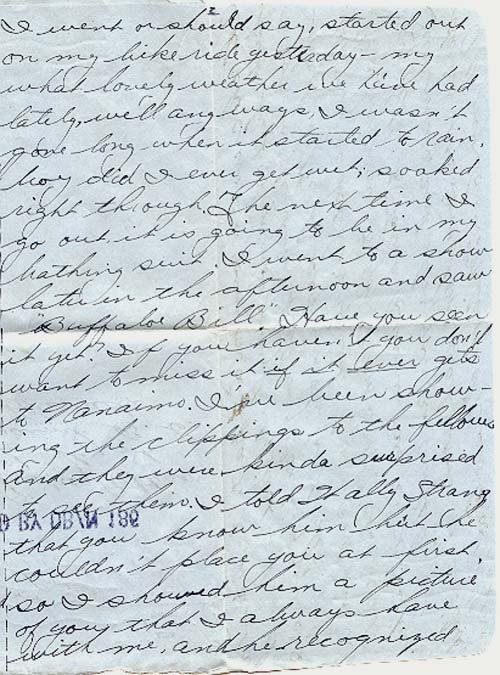 2
I went or should say, started out
on my bike ride yesterday - my
what lovely weather we have had
lately, well anyways, I wasn't
gone long when it started to rain,
boy did I ever get wet; soaked
right through. The next time I
go out it is going to be in my
bathing suit. I went to a show
later in the afternoon and saw
"Buffalo Bill". Have you seen
it yet? If you haven't you don't
want to miss it if it ever gets
to Nanaimo. I've been show-
ing the clippings to the fellows
and they were kinda surprised
to see them. I told Wally Strang
that you know him but he
D BX DB/N 189
couldn't place you at first,
so I showed him a picture
of you that I always have
with me, and he recognized